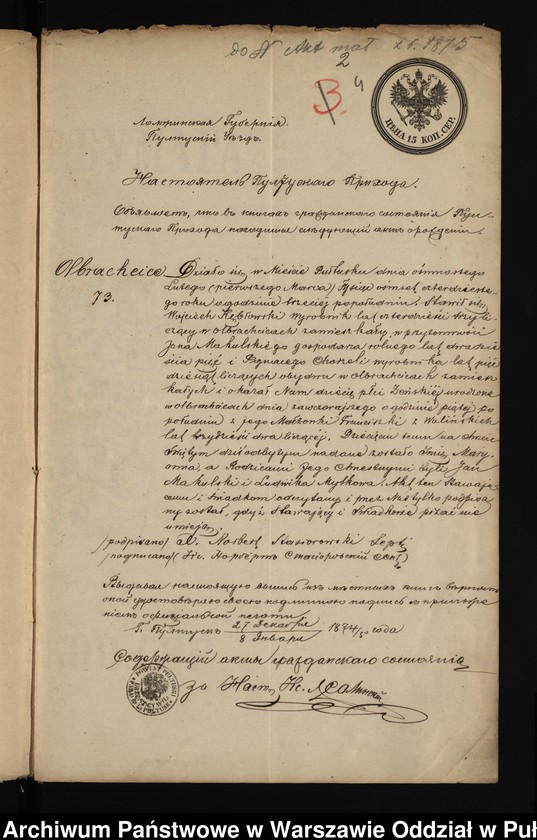 do N Akt mał z r. 1875
2
3. 4
ЦѢНА 15 КОП. СЕР.
Ломжинская Губернія.
Пултускій Уѣздъ.
Настоятель Пултускаго Прихода.
Объявляетъ, что въ книгахъ гражданскаго состоянія Пул-
тускаго Прихода находится слѣдующій актъ о рожденіи.
Olbrachcice Działo się w Mieście Pułtusku dnia ósmnastego
73. Lutego (pierwszego Marca) Tysiąc ośmset czterdzieste-
go roku o godzinie trzeciej popołudniu. Stawił się
Wojciech wyrobnik lat czterdzieści trzy li-
czący w Olbrachcicach zamieszkały, w przytomności
Jana Makulskiego gospodarza rolnego lat dwadzie-
ścia pięć i Ignacego wyrobnika lat pięć
dziesiąt liczących obydwu w Olbrachcicach zamiesz-
kałych i okazał Nam dziecię płci żeńskiej urodzone
w Olbrachcicach dnia zawczorajszego o godzinie piątej po
południu z jego Małżonki Franciszki z Wulińskich
lat trzydzieści dwa liczącej. Dziecięciu temu na Chrzcie
Świętym dziś odbytym nadane zostało Imię Mary-
anna a Rodzicami Jego Chrzestnymi byli Jan
Makulski i Ludwika Mytkowa. Akt ten Stawają-
cemu i świadkom odczytany i przez Nas tylko podpisa
ny został, gdyż Stawający i Świadkowie pisać nie
umieją.
/podpisano/ X. Norbert
/подписано/ Кс. Норбертъ
Выдавая настоящую выпись изъ мѣстныхъ книгъ вѣрность
оной удостовѣряю своею подлинною подписью съ приложе-
ніемъ оффиціальной печати
Г. Пултускъ 27 Декабря / 8 Января 1874/5 года
Содержащій акты гражданскаго состоянія
за Наст. Кс.